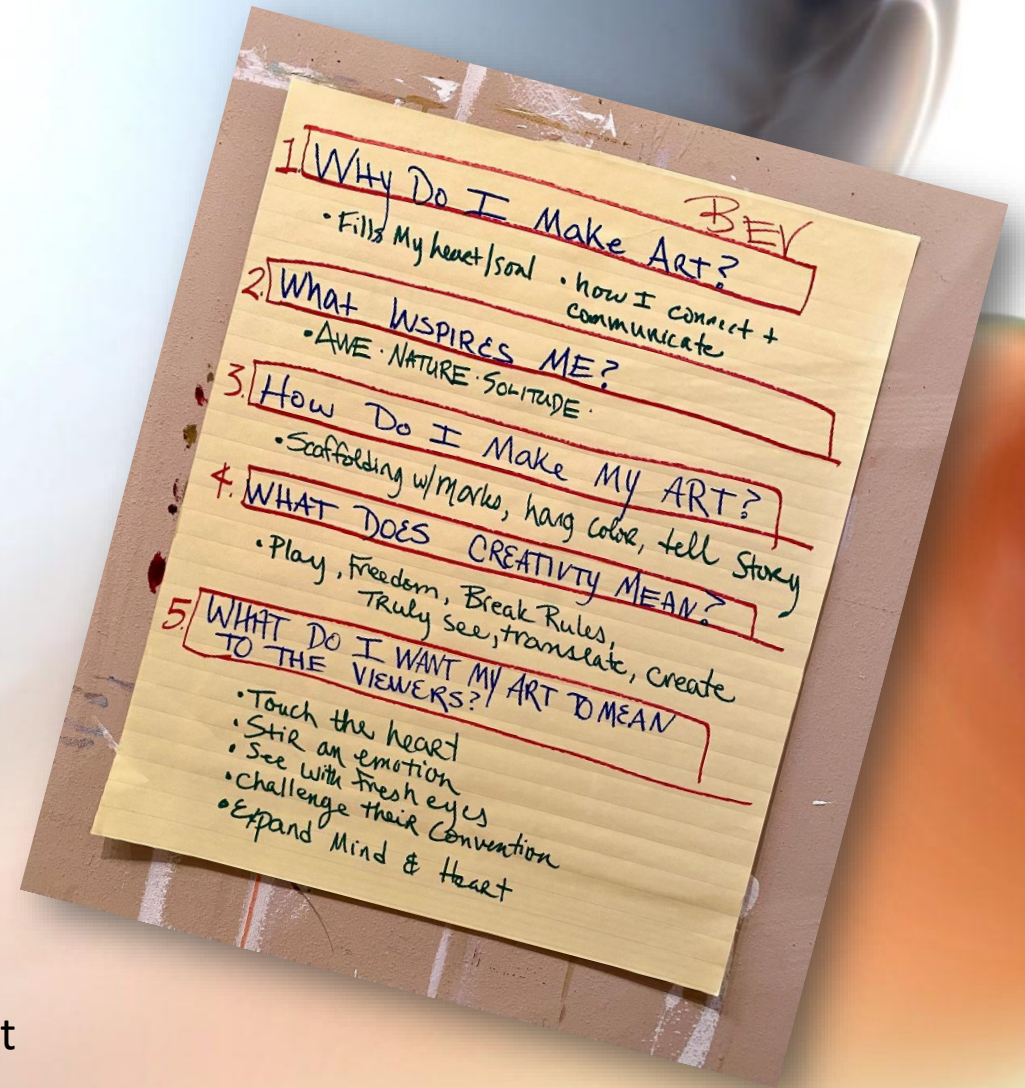 BEV
1. WHy Do I Make ART?
• Fills My heart/soul • how I connect +
communicate
2. What INSPIRES ME?
• AWE • NATURE • SOLITUDE •
3. How Do I Make MY ART?
• Scaffolding w/marks, hang color, tell Story
4. WHAT DOES CREATIVTY MEAN?
• Play, Freedom, Break Rules,
TRuly see, translate, create
5. WHAT DO I WANT MY ART TO MEAN
TO THE VIEWERS?
• Touch the heart
• Stir an emotion
• See with Fresh eyes
• Challenge their Convention
• Expand Mind & Heart
t